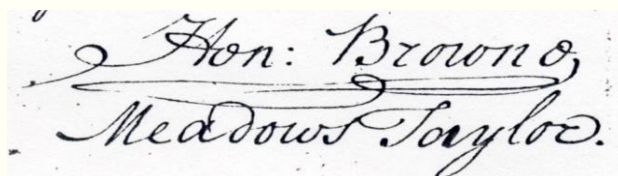 Hen: Browne,
Meadows Taylor.